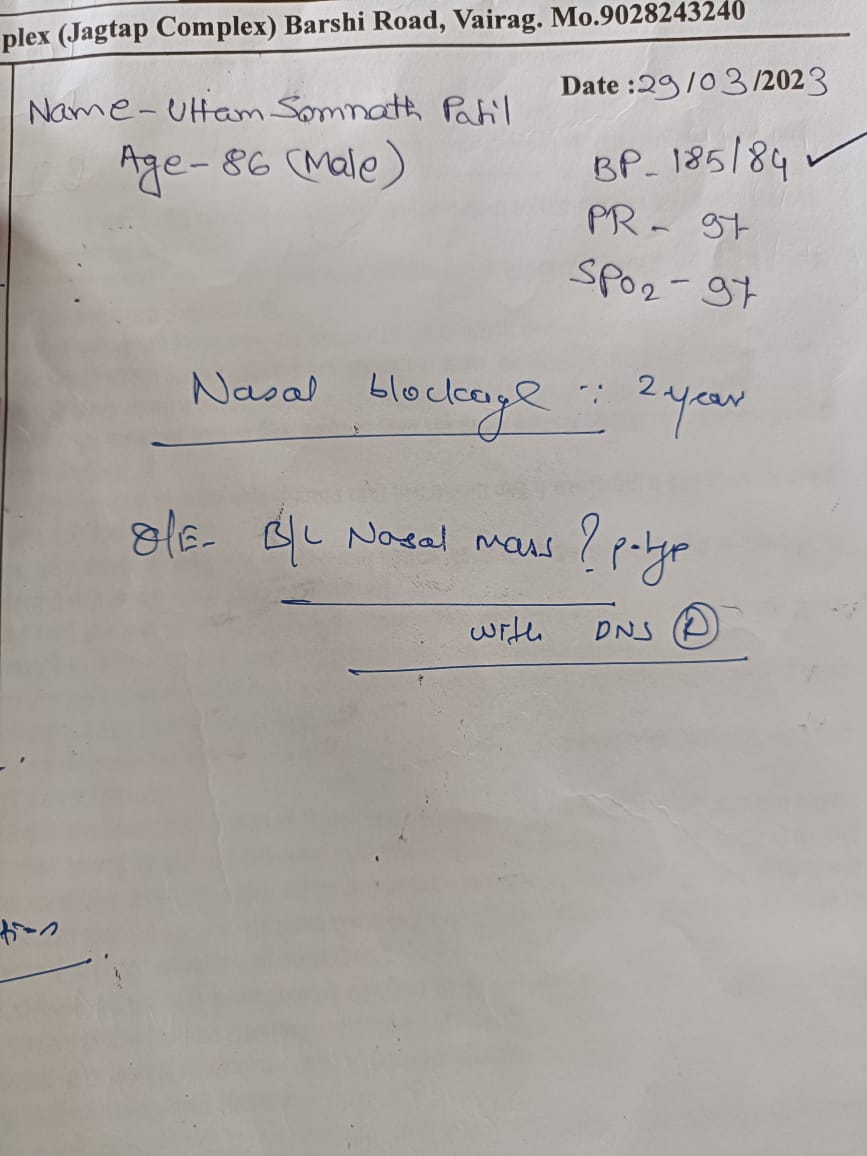 plex (Jagtap Complex) Barshi Road, Vairag. Mo.9028243240
Date :29/03/2023
Name - Uttam Somnath Patil
Age - 86 (Male)
BP - 185/84 ✓
PR - 97
SPO2 - 97
Nasal blockage ∵ 2 year
O/E - B/L Nasal mass ? polyp
with DNS (R)